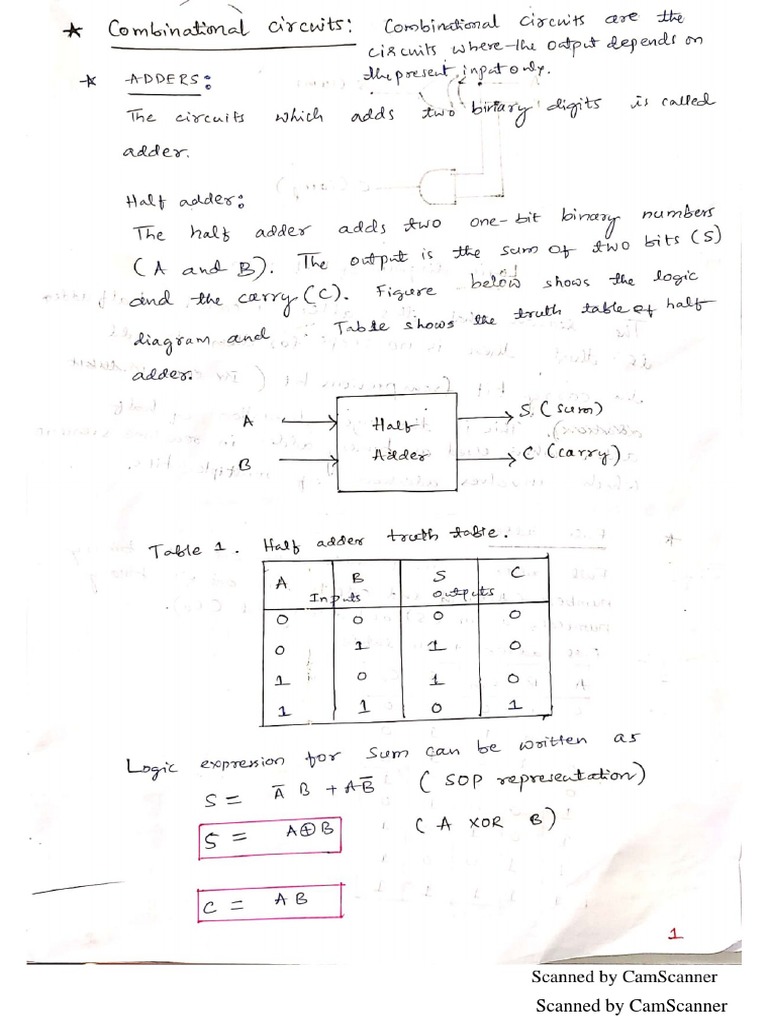 * Combinational circuits: Combinational circuits are the
circuits where the output depends on
the present input only.
* ADDERS:
The circuits which adds two binary digits is called
adder.
Half adder:
The half adder adds two one-bit binary numbers
(A and B). The output is the sum of two bits (S)
and the carry (C). Figure below shows the logic
diagram and Table shows the truth table of half
adder.
A Half S (sum)
B Adder C (carry)
Table 1. Half adder truth table.
A B S C
Inputs outputs
0 0 0 0
0 1 1 0
1 0 1 0
1 1 0 1
Logic expression for sum can be written as
S = A̅ B + A B̅ (SOP representation)
S = A⊕B (A XOR B)
C = A B
1
Scanned by CamScanner
Scanned by CamScanner